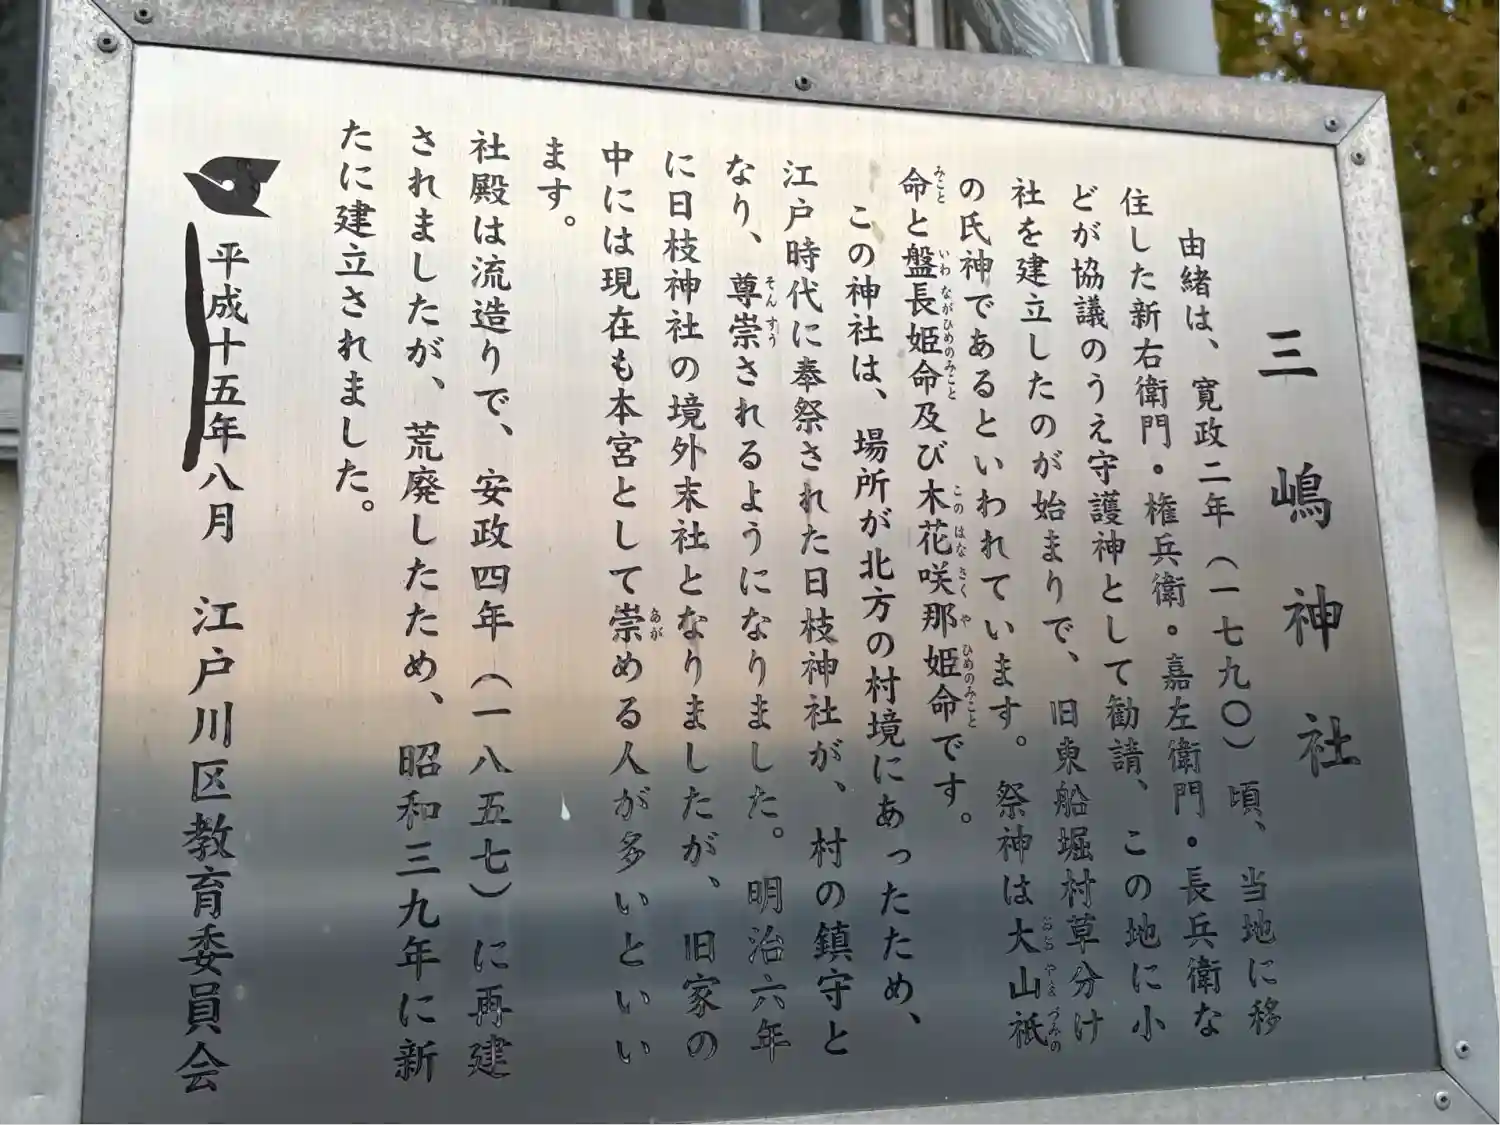 三嶋神社
由緒は、寛政二年（一七九〇）頃、当地に移
住した新右衛門・権兵衛・嘉左衛門・長兵衛な
どが協議のうえ守護神として勧請、この地に小
社を建立したのが始まりで、旧東船堀村草分け
の氏神であるといわれています。祭神は大山祇
命と盤長姫命及び木花咲那姫命です。
この神社は、場所が北方の村境にあったため、
江戸時代に奉祭された日枝神社が、村の鎮守と
なり、尊崇されるようになりました。明治六年
に日枝神社の境外末社となりましたが、旧家の
中には現在も本宮として崇める人が多いといい
ます。
社殿は流造りで、安政四年（一八五七）に再建
されましたが、荒廃したため、昭和三九年に新
たに建立されました。
平成十五年八月　江戸川区教育委員会